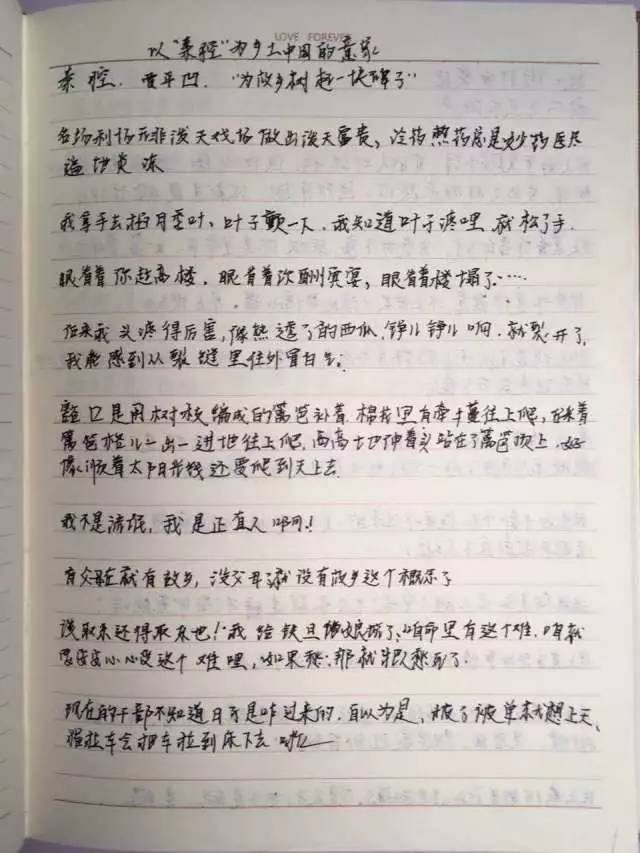 LOVE FOREVER
以"秦腔"为乡土中国的意象
秦腔. 贾平凹. "为故乡树起一块碑了"
名场利场无非泼天戏场做出泼天富贵, 冷药热药总是妙药医尽
遍地炎凉
我拿手去掐月季叶, 叶子颤一下, 我知道叶子疼哩, 就松了手.
眼看着你起高楼, 眼看着你酬宾宴, 眼看着楼塌了……
后来我头疼得厉害, 像熟透了的西瓜, 铮儿铮儿响. 就裂开了,
我能感到从裂缝里往外冒白气.
豁口是用树枝编成的篱笆补着. 棉花里有牵牛蔓往上爬, 踩着
篱笆格儿一出一进地往上爬, 高高地伸着头站在了篱笆顶上, 好
像顺着太阳光线还要爬到天上去.
我不是流氓, 我是正直人啊!
有父母在就有故乡, 没父母了就没有故乡这个概念了
该取来还得取来也! 我给铁旦他娘说了, 咱命里有这个难, 咱就
受这个难哩, 如果愁, 那就把人愁死了.
现在的干部不知道日子是咋过来的. 自以为是, 披了被单就想上天,
猛拉车会把车拉到 下去